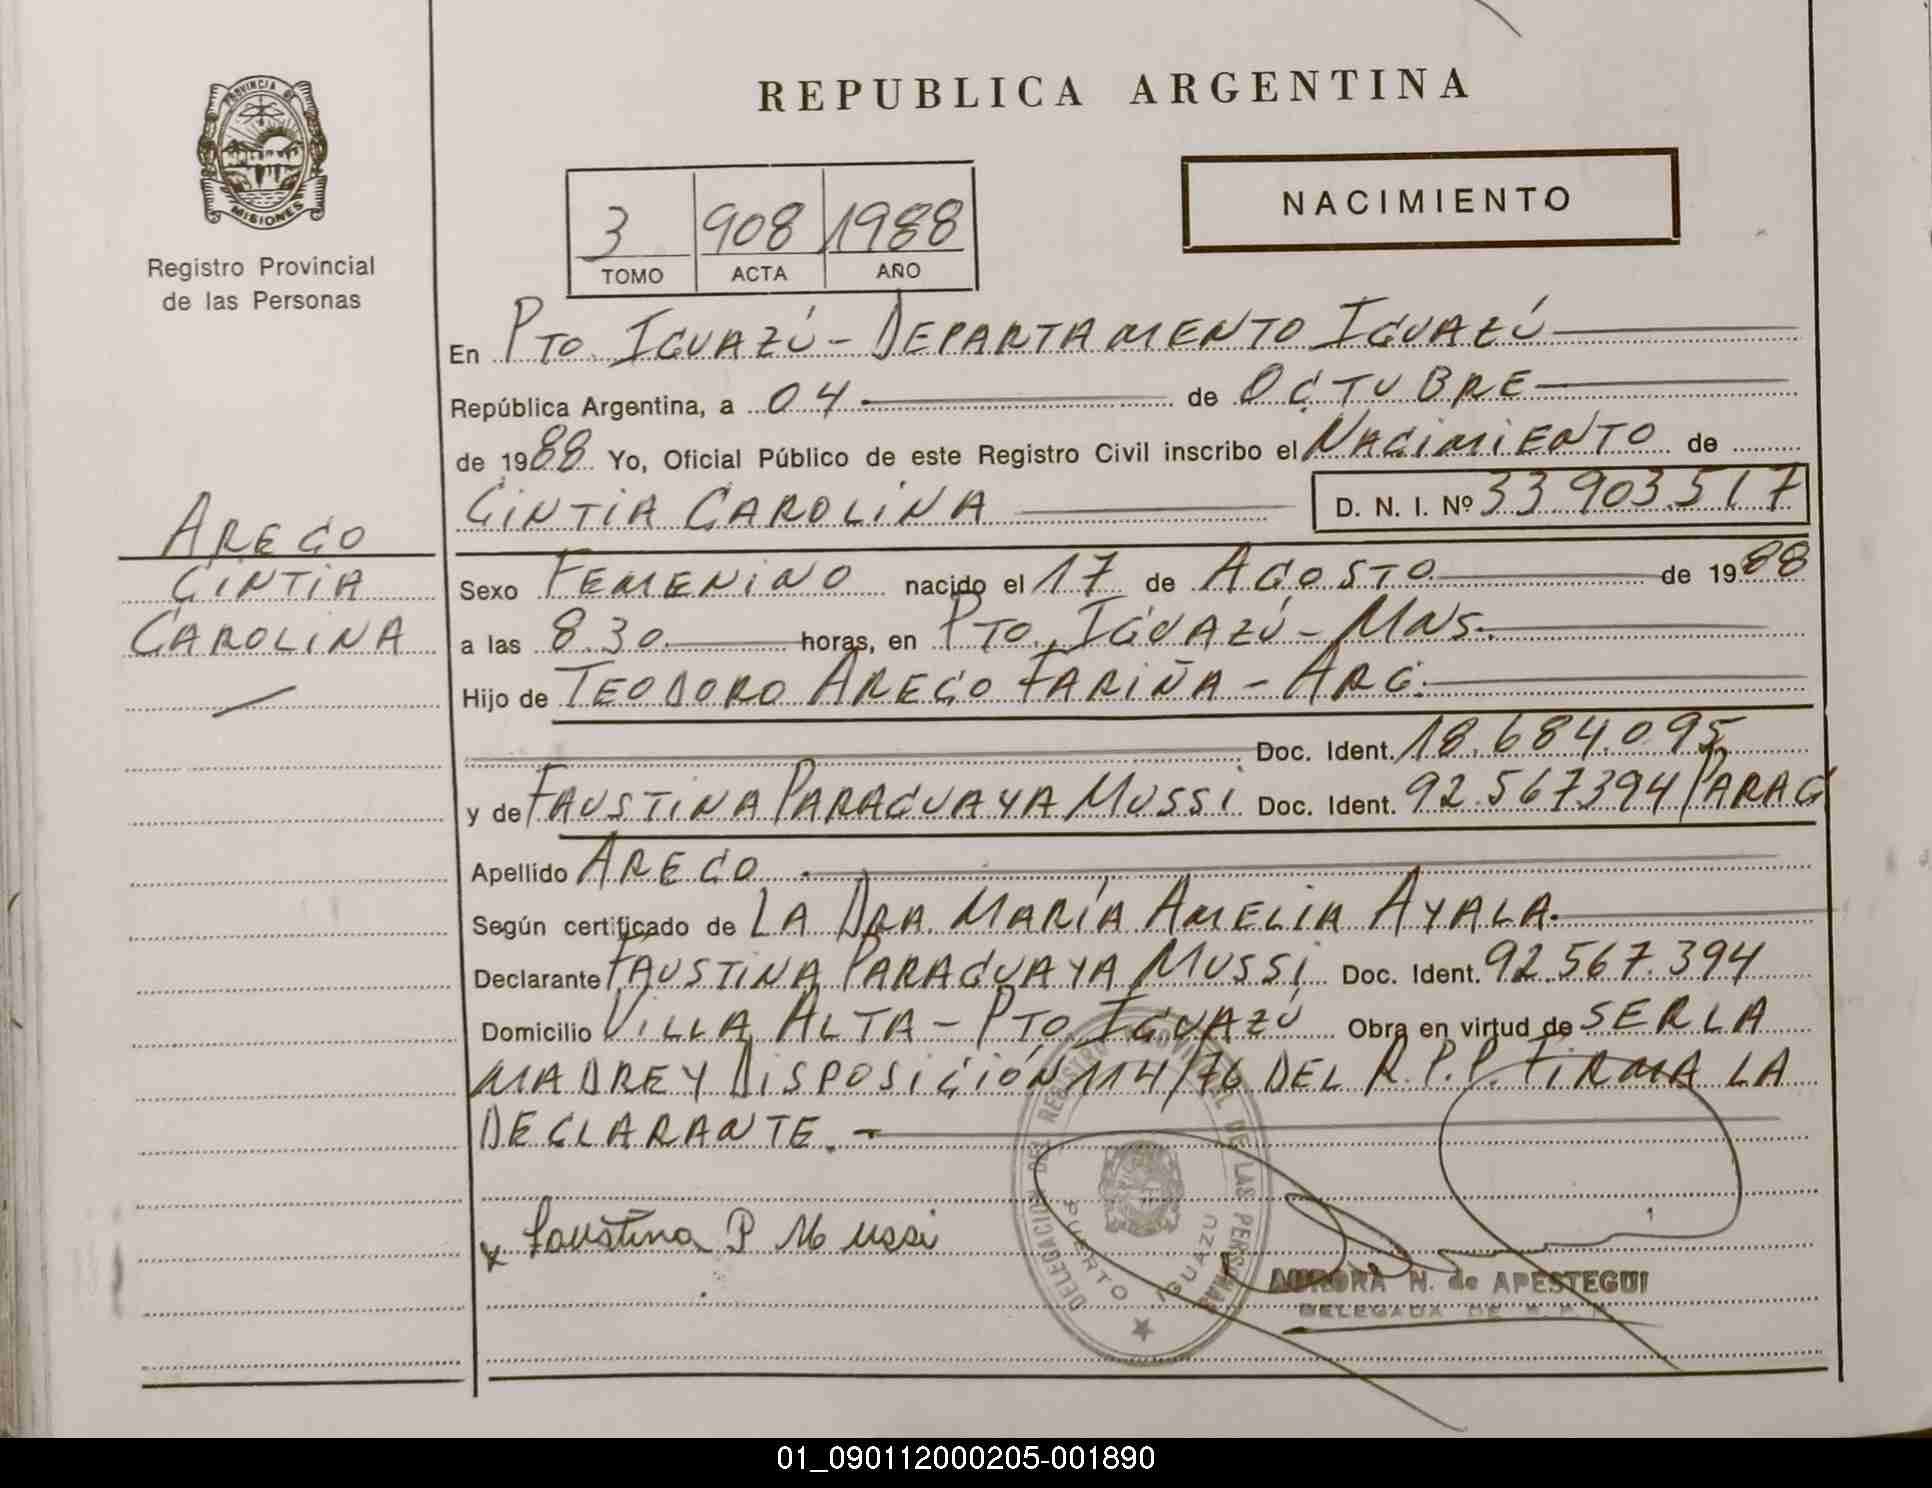 PROVINCIA DE
MISIONES
Registro Provincial
de las Personas
REPUBLICA ARGENTINA
3 908 1988
TOMO ACTA AÑO
NACIMIENTO
En PTO. IGUAZÚ - DEPARTAMENTO IGUAZÚ
República Argentina, a 04 de OCTUBRE
de 1988 Yo, Oficial Público de este Registro Civil inscribo el NACIMIENTO de
CINTIA CAROLINA D. N. I. Nº 33903.517
AREGO
CINTIA
CAROLINA
Sexo FEMENINO nacido el 17 de AGOSTO de 1988
a las 8.30 horas, en PTO. IGUAZÚ - MNS.
Hijo de TEODORO AREGO FARIÑA - ARG.
Doc. Ident. 18.684.095
y de FAUSTINA PARAGUAYA MUSSI Doc. Ident. 92.567394 PARAG
Apellido AREGO
Según certificado de LA DRA. MARÍA AMELIA AYALA.
Declarante FAUSTINA PARAGUAYA MUSSI Doc. Ident. 92.567.394
Domicilio VILLA ALTA - PTO. IGUAZÚ Obra en virtud de SER LA
MADRE Y DISPOSICIÓN 114/76 DEL R.P.P. FIRMA LA
DECLARANTE. -
x Faustina P Mussi
DELEGACION DEL REGISTRO PROVINCIAL DE LAS PERSONAS
PUERTO IGUAZU
AURORA N. de APESTEGUI
DELEGADA DE
01_090112000205-001890